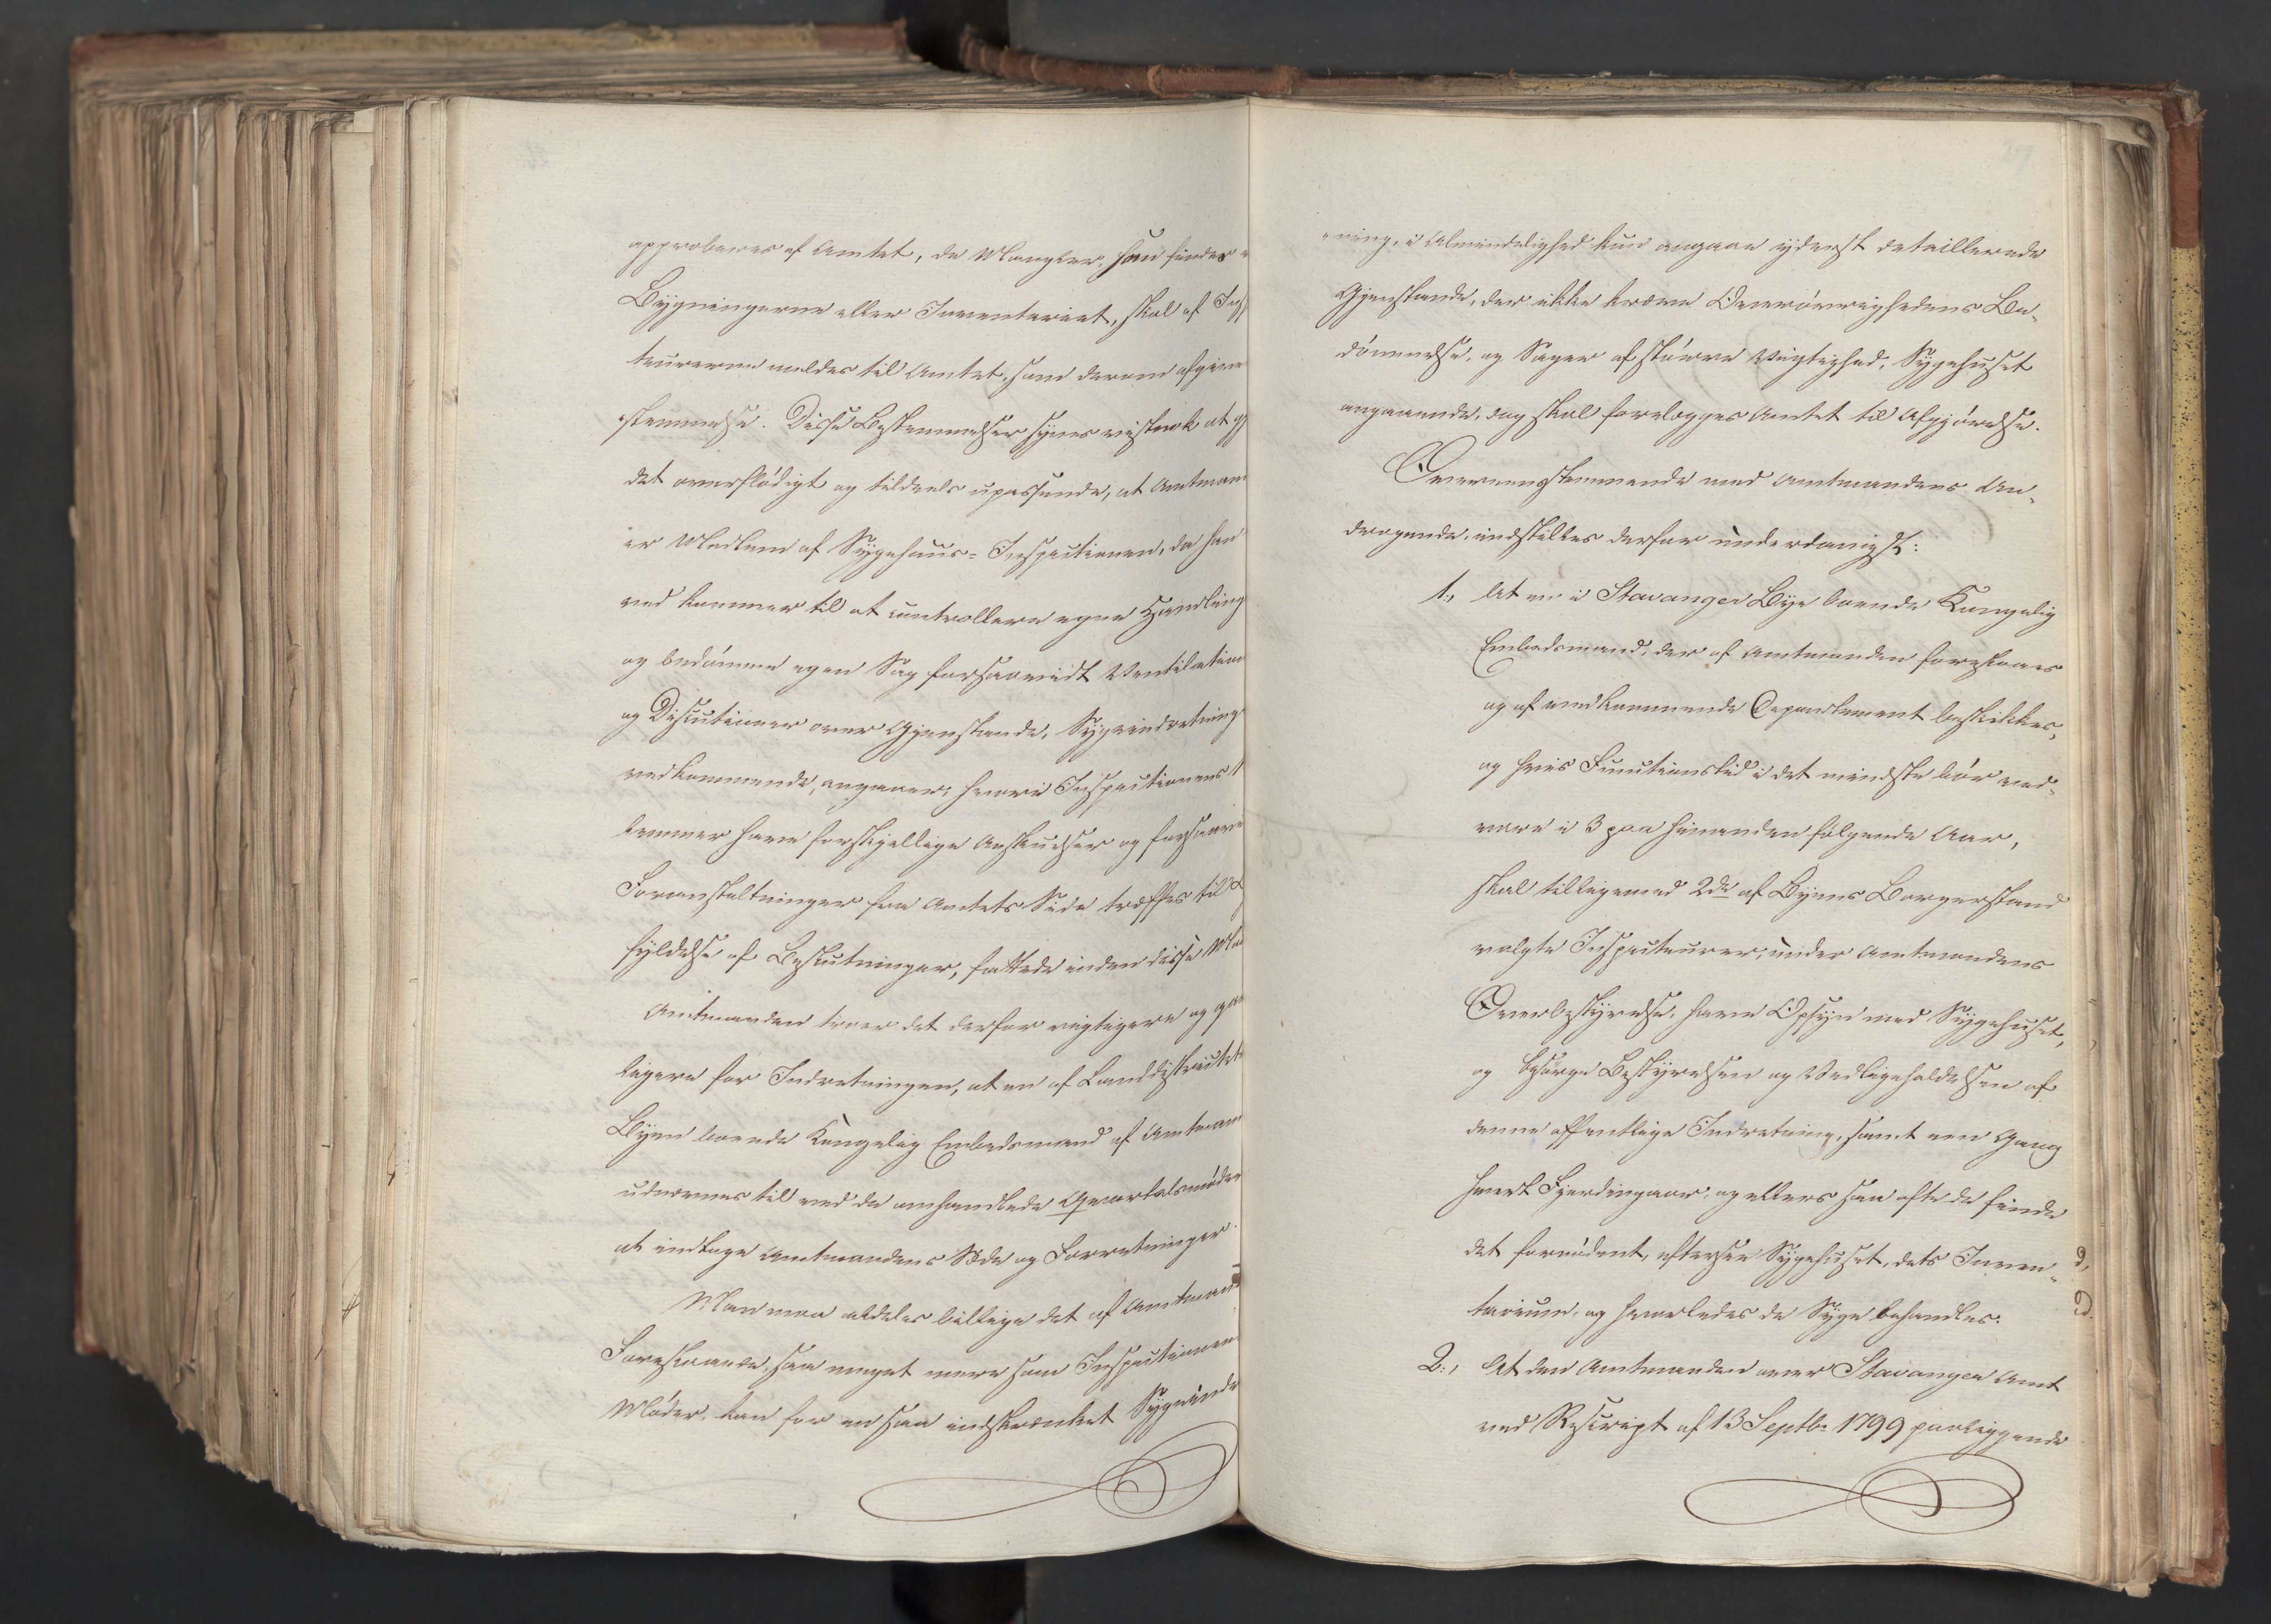 approberes af Amtet, de Mangler, som findes
Bygningerne eller Inventariet, skal af Insp
teurerne meldes til Amtet, som derom afgiver
stemmelse. Disse Bestemmelser synes vistnok at gj
det overflødigt og tildeels upassende, at Amtmand
er Medlem af Sygehuus-Inspectionen, da han
ved kommer til at controllere egne Handling
og bedømme egen Sag forsaavidt Ventilation
og Discutioner over Gjenstande, Sygeindretning
vedkommende, angaaer, hvori Inspectionens M
lemmer have forskjellige Anskuelser og forsaavi
Foranstaltninger fra Amtets Side træffes til O
fyldelse af Beslutninger, fattede inden disse Mø
Amtmanden troer det derfor vigtigere og ga
ligere for Indretningen, at en af Landdistrictet
Byen boende Kongelig Embedsmand af Amtman
udnævnes til ved de omhandlede Qvartalsmøder
at indtage Amtmandens Sæde og Forretninger.
Man maa aldeles billige det af Amtmand
Foreslaaede, saa meget mere som Inspectionen
Møder, kan for en saa indskrænket Sygeindr
ning, i Almindelighed kun angaae yderst detaillerede
Gjenstande, der ikke kræve Overøvrighedens Be-
dømmelse, og Sager af større Vigtighed, Sygehuset
angaaende, dog skal forelægges Amtet til Afgjørelse.
Overeensstemmende med Amtmandens An-
dragende, indstilles derfor underdanigst:
1., At en i Stavanger Bye boende Kongelig
Embedsmand, der af Amtmanden foreslaaes
og af vedkommende Departement beskikkes,
og hvis Functionstid i det mindste bør ved-
vare i 3 paa hinanden følgende Aar,
skal tilligemed 2de af Byens Borgerstand
valgte Inspecteurer, under Amtmandens
Overbestyrelse, have Opsyn med Sygehuset,
og besørge Bestyrelsen og Vedligeholdelsen af
denne offentlige Indretning, samt een Gang
hvert Fjerdingaar, og ellers saa ofte de finde
det fornødent, eftersee Sygehuset, dets Inven-
tarium, og hvorledes de Syge behandles.
2., At den Amtmanden over Stavanger Amt
ved Rescript af 13 Septbr 1799 paaliggende